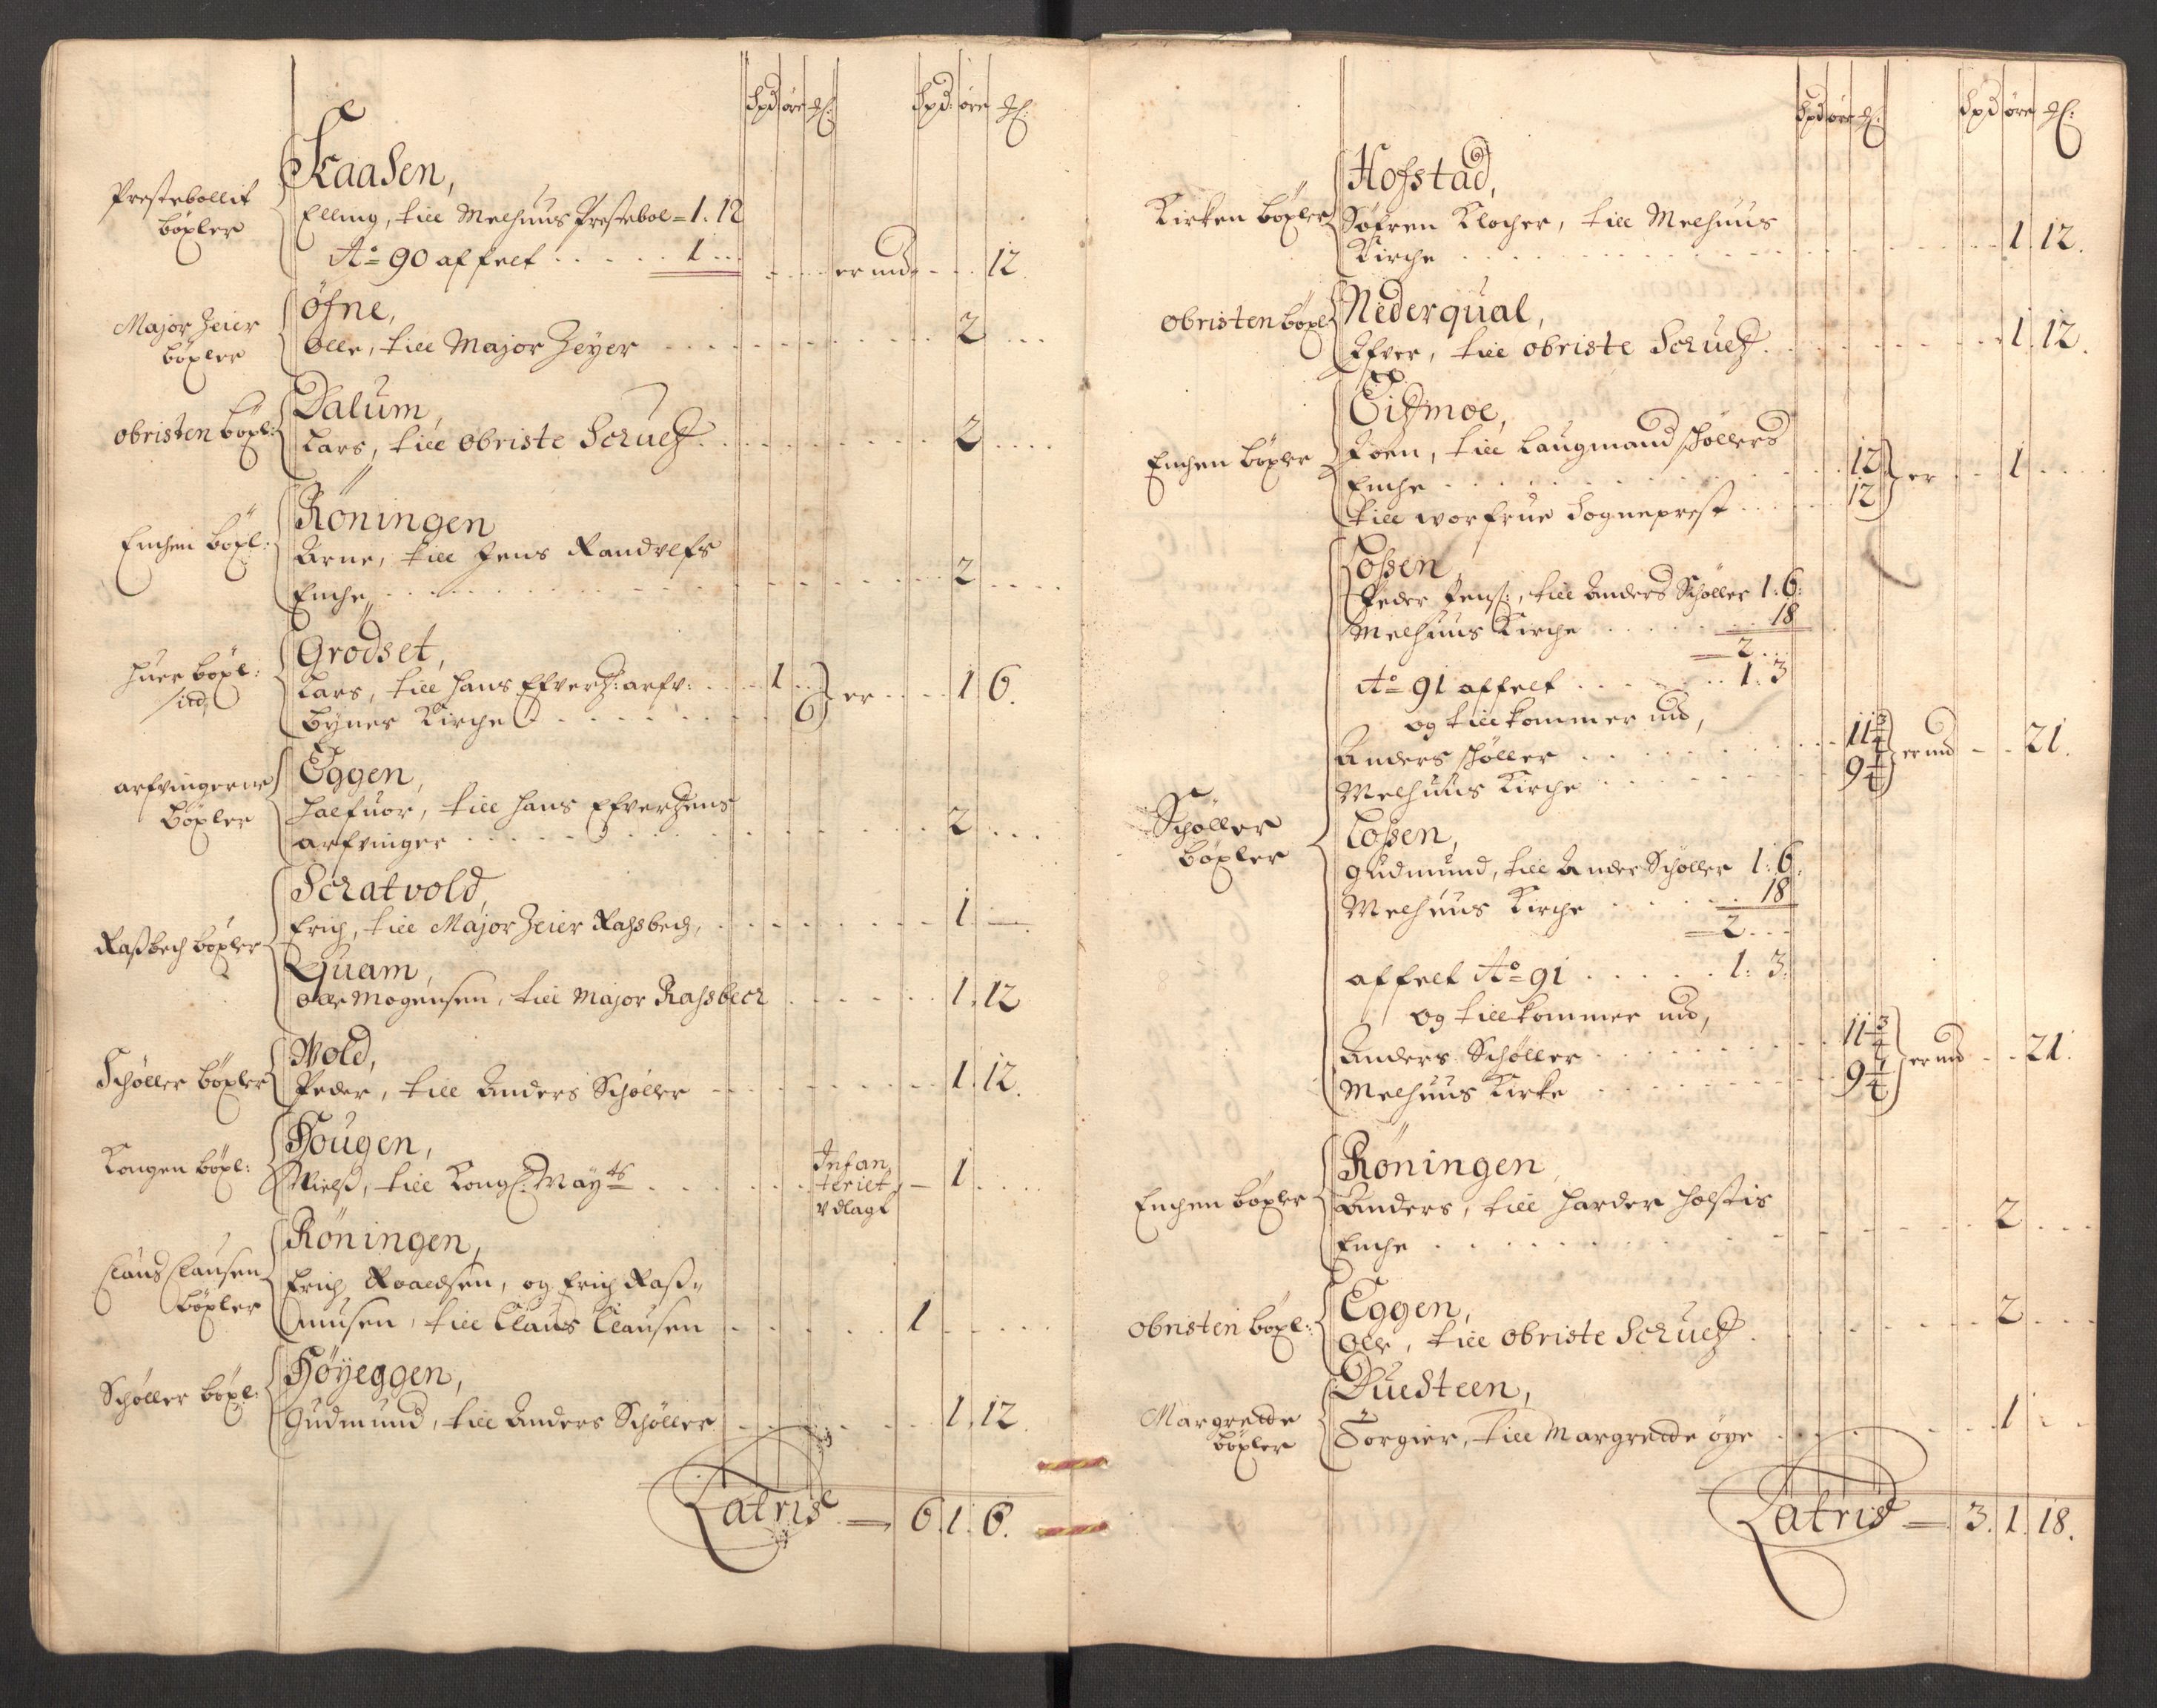 Spd øre
Spd: øre
Prestebollit
böxler
Kaasen,
Elling, till Melhuus Prestebol = 1. 12
Ao 90 affelt . . . . . 1 . . . er nu . . . 12
Major Zeier
böxler
Öfne,
Olle, till Major Zeyer . . . 2 . . .
Obristen böxl:
Dalum,
Lars, till Obriste Schultz . . . 2 . . .
Enchen böxl:
Röningen
Arne, till Jens Randulfs
Enche . . . 2 . . .
huer böxl:
sitd,
Grodset,
Lars, till Hans Efverh: arfv: . . . 1 . .
Bynes Kirche . . . 6 } er . . . 1 6.
arfvingerne
böxler
Eggen,
Halfuor, till Hans Efverhens
arfvinger . . . 2 . . .
Rasbech böxler
Scratvold,
Erich, till Major Zeier Rahsbech, . . . 1 —
Quam,
Olle Mogensen, till Major Rahsbech . . . 1. 12
Schøller böxler
Wold,
Peder, till Anders Schøller . . . 1. 12.
Kongen böxl:
Hougen,
Niels, till Kongl: Mayts . . . Infan,
teriet
udlagt — 1 . . .
Claus Clausen
böxler
Röningen,
Erich Roaldsen, og Erich Ras-
musen, till Claus Clausen . . . 1 . . .
Schøller böxl:
Höyeggen,
Gudmund, till Anders Schøller . . . 1. 12
Latris — 6. 1. 6.
Spd øre
Spd øre
Kirken böxler
Hofstad,
Søfren Klocher, till Melhuus
Kirche . . . 1. 12.
Obristen böxl
Nederqual,
Ifver, till Obriste Schultz . . . 1. 12.
Enchen böxler
Eidsmoe,
Joen, till Laugmand Schøllers
Enche . . . 12
till worfrue Sogneprest . . . 12 } er . . 1 . . .
Schøller
böxler
Loßen,
Peder Jens:, till Anders Schøller 1. 6:
Melhuus Kirche . . . 18
2 . .
Ao 91 affelt . . . 1. 3
og till kommer nu,
Anders Schøller . . . 11 3/4
Melhuus Kirche . . . 9 1/4 } er nu . . 21.
Loßen,
Gudmund, till Anders Schøller 1. 6.
Melhuus Kirche . . . 18
2 . . .
affelt Ao 91 . . . 1. 3.
og till kommer nu,
Anders Schøller . . . 11 3/4
Melhuus Kirke . . . 9 1/4 } er nu . . 21.
Enchen böxler
Röningen,
Anders, till Harder Holstis
Enche . . . 2 . . .
Obristen böxl:
Eggen,
Olle, till Obriste Schultz . . . 2 . . .
Margrette
böxler
Duesteen,
Torgier, till Margrette öye . . . 1 . .
Latris — 3. 1. 18.